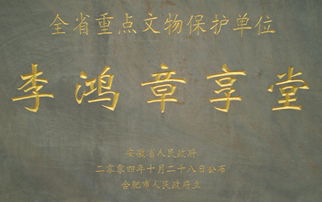 全省重点文物保护单位
李鸿章享堂
安徽省人民政府
二零零四年十月二十八日公布
合肥市人民政府立